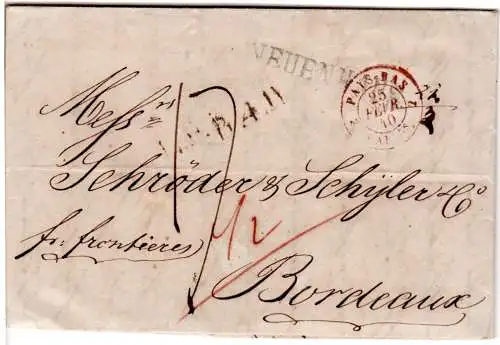 PAYS-BAS
25
FEVR.
40
Messrs
Schröder & Schÿler & Co
fr. frontieres
1/2
Bordeaux